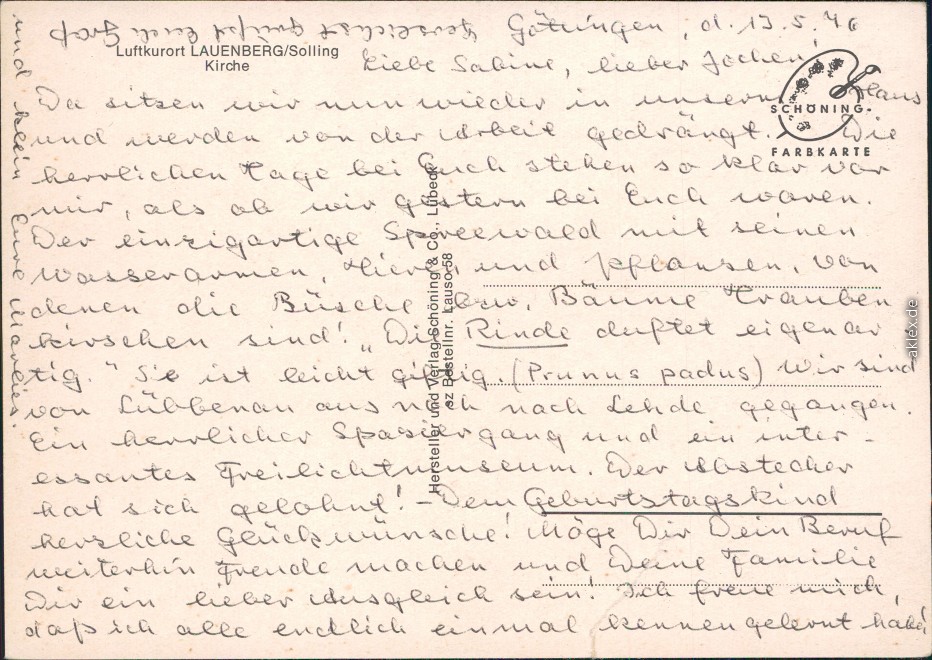 Göttingen, d. 13.5.76
Luftkurort LAUENBERG/Solling
Kirche
Liebe Sabine, lieber Jochen!
Da sitzen wir nun wieder in unserm Haus
und werden von der Arbeit gedrängt. Die
herrlichen Tage bei Euch stehen so klar vor
mir, als ob wir gestern bei Euch waren.
Der einzigartige Spreewald mit seinen
Wasserarmen, Tieren und Pflanzen, von
denen die Büsche bzw. Bäume Trauben
kirschen sind! "Die Rinde duftet eigenar
tig." Sie ist leicht giftig. (Prunus padus) Wir sind
von Lübbenau aus noch nach Lehde gegangen.
Ein herrlicher Spaziergang und ein inter-
essantes Freilichtmuseum. Der Abstecher
hat sich gelohnt! - Dem Geburtstagskind
herzliche Glückwünsche! Möge Dir Dein Beruf
weiterhin Freude machen und Deine Familie
Dir ein lieber Ausgleich sein! Ich freue mich,
daß ich alle endlich einmal kennen gelernt habe!
Herzlichst grüßt Euch
und klein Eure Marlies.
SCHÖNING-
FARBKARTE
Hersteller und Verlag Schöning & Co., Lübeck
sz Bestellnr. Lauso 58
aklex.de